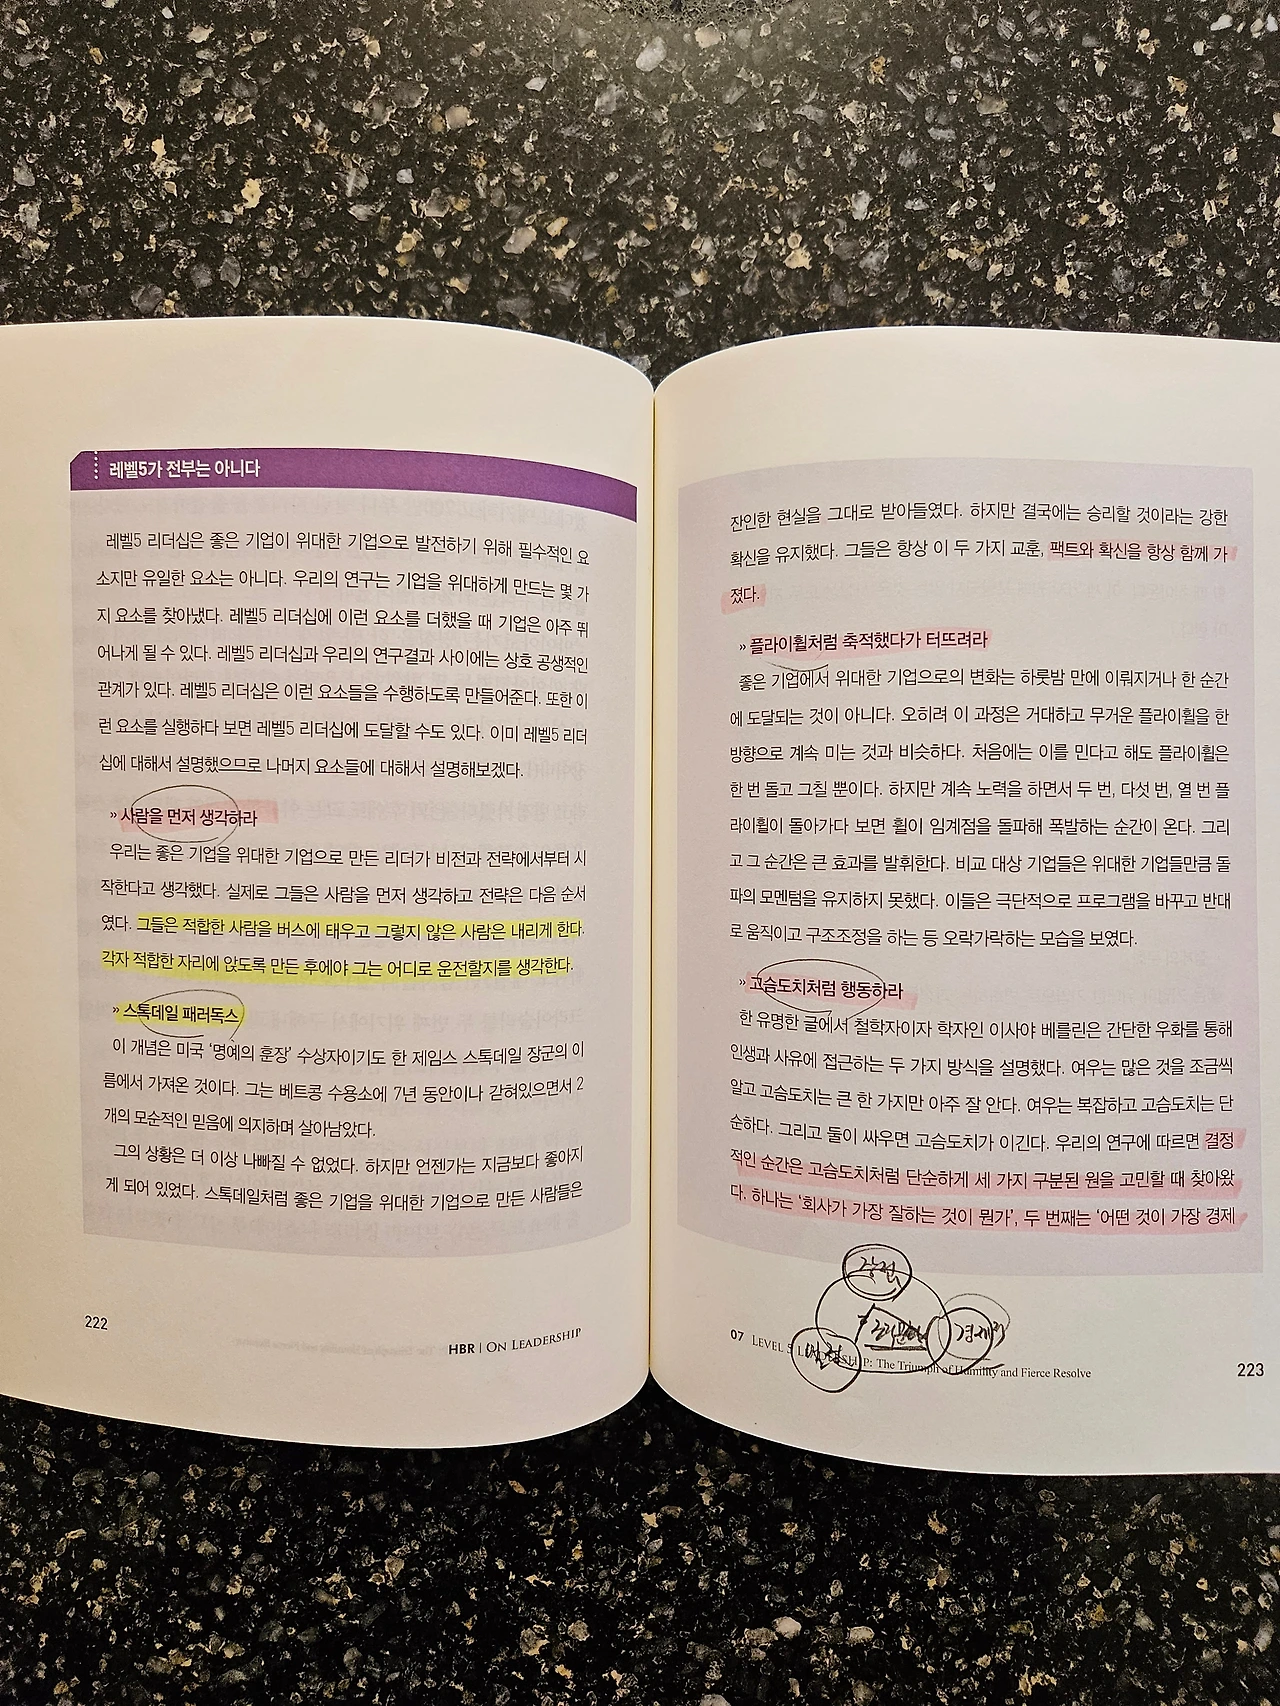 레벨5가 전부는 아니다
레벨5 리더십은 좋은 기업이 위대한 기업으로 발전하기 위해 필수적인 요
소지만 유일한 요소는 아니다. 우리의 연구는 기업을 위대하게 만드는 몇 가
지 요소를 찾아냈다. 레벨5 리더십에 이런 요소를 더했을 때 기업은 아주 뛰
어나게 될 수 있다. 레벨5 리더십과 우리의 연구결과 사이에는 상호 공생적인
관계가 있다. 레벨5 리더십은 이런 요소들을 수행하도록 만들어준다. 또한 이
런 요소를 실행하다 보면 레벨5 리더십에 도달할 수도 있다. 이미 레벨5 리더
십에 대해서 설명했으므로 나머지 요소들에 대해서 설명해보겠다.
» 사람을 먼저 생각하라
우리는 좋은 기업을 위대한 기업으로 만든 리더가 비전과 전략에서부터 시
작한다고 생각했다. 실제로 그들은 사람을 먼저 생각하고 전략은 다음 순서
였다. 그들은 적합한 사람을 버스에 태우고 그렇지 않은 사람은 내리게 한다.
각자 적합한 자리에 앉도록 만든 후에야 그는 어디로 운전할지를 생각한다.
» 스톡데일 패러독스
이 개념은 미국 ‘명예의 훈장’ 수상자이기도 한 제임스 스톡데일 장군의 이
름에서 가져온 것이다. 그는 베트콩 수용소에 7년 동안이나 갇혀있으면서 2
개의 모순적인 믿음에 의지하며 살아남았다.
그의 상황은 더 이상 나빠질 수 없었다. 하지만 언젠가는 지금보다 좋아지
게 되어 있었다. 스톡데일처럼 좋은 기업을 위대한 기업으로 만든 사람들은
222
HBR | ON LEADERSHIP
잔인한 현실을 그대로 받아들였다. 하지만 결국에는 승리할 것이라는 강한
확신을 유지했다. 그들은 항상 이 두 가지 교훈, 팩트와 확신을 항상 함께 가
졌다.
» 플라이휠처럼 축적했다가 터뜨려라
좋은 기업에서 위대한 기업으로의 변화는 하룻밤 만에 이뤄지거나 한 순간
에 도달되는 것이 아니다. 오히려 이 과정은 거대하고 무거운 플라이휠을 한
방향으로 계속 미는 것과 비슷하다. 처음에는 이를 민다고 해도 플라이휠은
한 번 돌고 그칠 뿐이다. 하지만 계속 노력을 하면서 두 번, 다섯 번, 열 번 플
라이휠이 돌아가다 보면 휠이 임계점을 돌파해 폭발하는 순간이 온다. 그리
고 그 순간은 큰 효과를 발휘한다. 비교 대상 기업들은 위대한 기업들만큼 돌
파의 모멘텀을 유지하지 못했다. 이들은 극단적으로 프로그램을 바꾸고 반대
로 움직이고 구조조정을 하는 등 오락가락하는 모습을 보였다.
» 고슴도치처럼 행동하라
한 유명한 글에서 철학자이자 학자인 이사야 베를린은 간단한 우화를 통해
인생과 사유에 접근하는 두 가지 방식을 설명했다. 여우는 많은 것을 조금씩
알고 고슴도치는 큰 한 가지만 아주 잘 안다. 여우는 복잡하고 고슴도치는 단
순하다. 그리고 둘이 싸우면 고슴도치가 이긴다. 우리의 연구에 따르면 결정
적인 순간은 고슴도치처럼 단순하게 세 가지 구분된 원을 고민할 때 찾아왔
다. 하나는 ‘회사가 가장 잘하는 것이 뭔가’, 두 번째는 ‘어떤 것이 가장 경제
열정
07 LEVEL 5 LEADERSHIP: The Triumph of Humility and Fierce Resolve
223